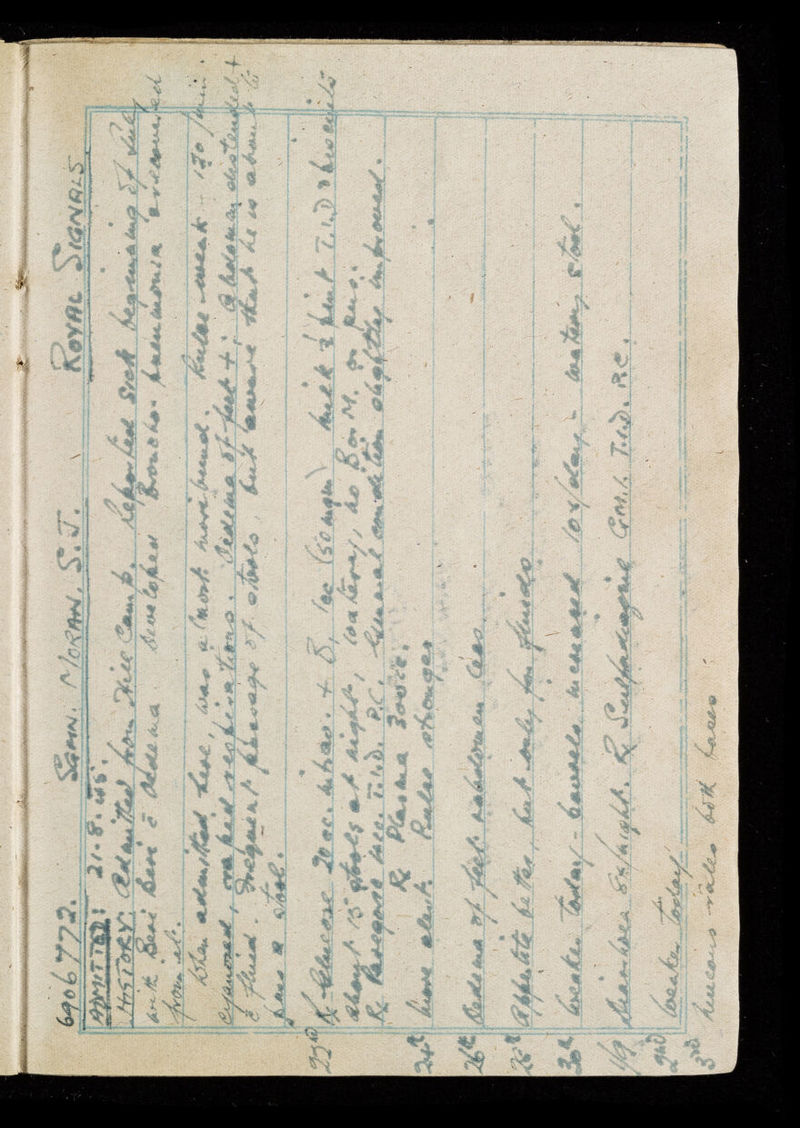 6906772. SGMN. MORAN. S.J. ROYAL SIGNALS
ADMITTED: 21.8.45.
HISTORY: Admitted from Hill Camp. Reported sick beginning of July
with Beri Beri c̄ Oedema. Developed Broncho-pneumonia & recovered
from it.
When admitted here, was almost moribund. Pulse weak - 120 /min.
cyanosed, rapid respirations. Oedema of feet +; Abdomen distended +
c̄ fluid. Frequent passage of stools, but unaware that he is about to
pass a stool.
22nd Rx Glucose 20 cc. intrav. + B, 1cc (50 mgm) milk ½ pint T.I.D & biscuits
About 15 stools at night, watery, no B or M. or pus.
Rx Paregoric T.I.D. P.C. General condition slightly improved.
Rx Plasma 300cc.
24th more alert. Pulse stronger
26th Oedema of feet & abdomen less.
28th Appetite better, but only for fluids
30th Weaker today - bowels increased 10x/day - watery stool.
1/9 Diarrhoea 8x/night. Rx Sulfadiazine Gm.i. T.I.D. P.C.
2nd Weaker today
3rd Mucous rales both bases.